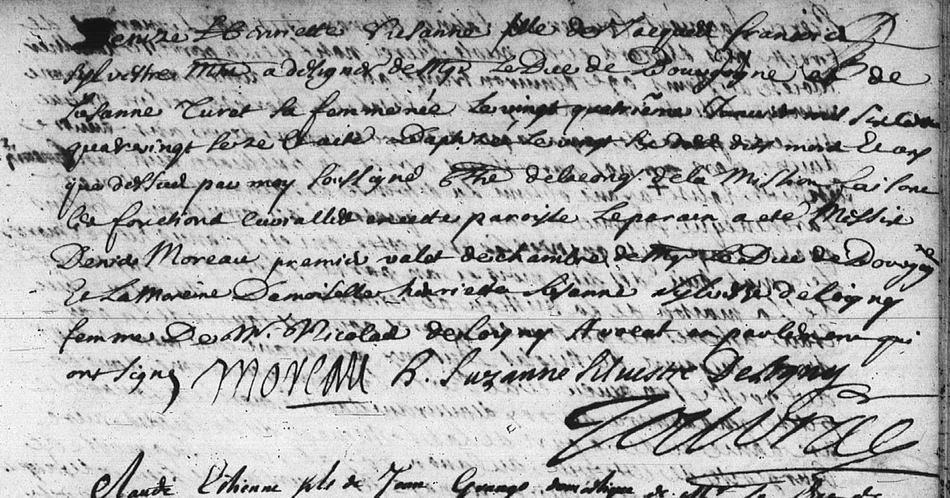 Denize Henriette Susanne fille de Jacques francois
Sylvestre Mtre a designer de Mgr Le Duc de Bourgogne et de
Susanne Turet sa femme née Le vingt quatrieme mil six cens
quatrevingt seize a été Baptizée Le vingt dudit mois Et an
que dessus par moy soussigné ptre de la cong de la Mission faisant
Les fonctions curialles en cette paroisse Le parain a eté Messire
Denis Moreau premier valet de chambre de Mgr Le Duc de Bourgogne
Et La Mareine Demoiselle henriette Susanne Sylvestre de Loigny
femme De Mr. Nicolas de Loigny Avocat en parlement qui
ont signé MOREAU h. Suzanne Siluestre De Ligny
Claude Estienne fils de Jean domestique de Mr